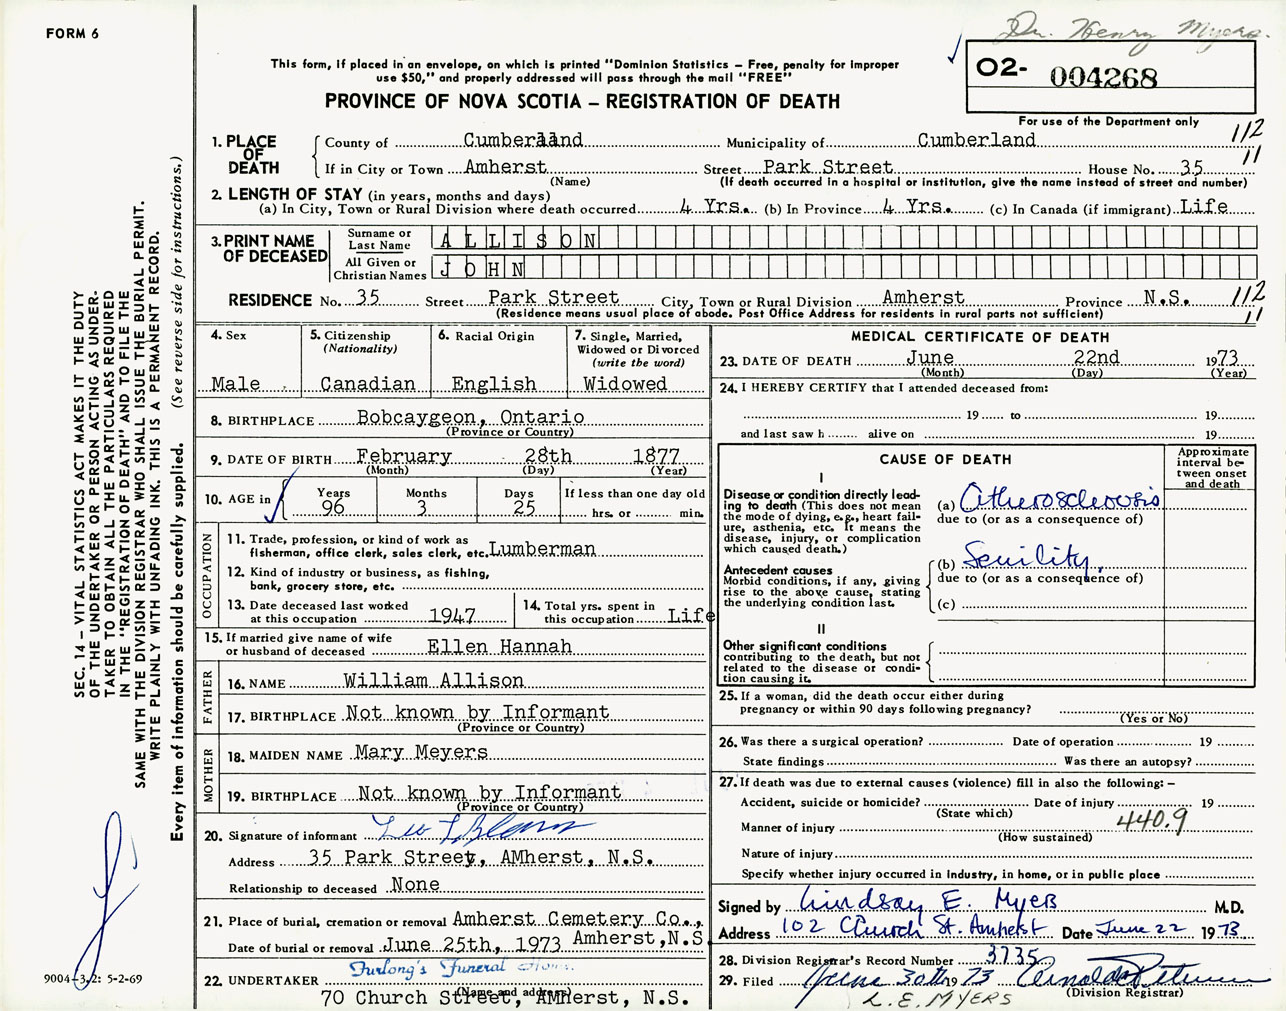 FORM 6
Dr. Henry Myers.
This form, if placed in an envelope, on which is printed "Dominion Statistics – Free, penalty for improper
use $50," and properly addressed will pass through the mail "FREE"
O2- 004268
PROVINCE OF NOVA SCOTIA – REGISTRATION OF DEATH
For use of the Department only
1. PLACE OF DEATH
County of Cumberland Municipality of Cumberland 112
If in City or Town Amherst Street Park Street House No. 35 11
(Name) (If death occurred in a hospital or institution, give the name instead of street and number)
2. LENGTH OF STAY (in years, months and days)
(a) In City, Town or Rural Division where death occurred 4 Yrs. (b) In Province 4 Yrs. (c) In Canada (if immigrant) Life
3. PRINT NAME OF DECEASED
Surname or Last Name ALLISON
All Given or Christian Names JOHN
RESIDENCE No. 35 Street Park Street City, Town or Rural Division Amherst Province N.S. 112
(Residence means usual place of abode. Post Office Address for residents in rural parts not sufficient) 11
4. Sex
Male
5. Citizenship
(Nationality)
Canadian
6. Racial Origin
English
7. Single, Married,
Widowed or Divorced
(write the word)
Widowed
8. BIRTHPLACE Bobcaygeon, Ontario
(Province or Country)
9. DATE OF BIRTH February 28th 1877
(Month) (Day) (Year)
10. AGE in
Years Months Days If less than one day old
96 3 25 hrs. or min.
OCCUPATION
11. Trade, profession, or kind of work as
fisherman, office clerk, sales clerk, etc. Lumberman
12. Kind of industry or business, as fishing,
bank, grocery store, etc.
13. Date deceased last worked
at this occupation 1947
14. Total yrs. spent in
this occupation Life
15. If married give name of wife
or husband of deceased Ellen Hannah
FATHER
16. NAME William Allison
17. BIRTHPLACE Not known by Informant
(Province or Country)
MOTHER
18. MAIDEN NAME Mary Meyers
19. BIRTHPLACE Not known by Informant
(Province or Country)
20. Signature of informant
Address 35 Park Street, AMherst, N.S.
Relationship to deceased None
21. Place of burial, cremation or removal Amherst Cemetery Co.,
Date of burial or removal June 25th, 1973 Amherst, N.S
Furlong's Funeral Home
22. UNDERTAKER
(Name and address)
70 Church Street, AMherst, N.S.
MEDICAL CERTIFICATE OF DEATH
23. DATE OF DEATH June 22nd 1973
(Month) (Day) (Year)
24. I HEREBY CERTIFY that I attended deceased from:
19 to 19
and last saw h alive on 19
CAUSE OF DEATH
Approximate
interval be-
tween onset
and death
I
Disease or condition directly lead-
ing to death (This does not mean
the mode of dying, e.g., heart fail-
ure, asthenia, etc. It means the
disease, injury, or complication
which caused death.)
(a) Atherosclerosis
due to (or as a consequence of)
Antecedent causes
Morbid conditions, if any, giving
rise to the above cause, stating
the underlying condition last.
(b) Senility,
due to (or as a consequence of)
(c)
II
Other significant conditions
contributing to the death, but not
related to the disease or condi-
tion causing it.
25. If a woman, did the death occur either during
pregnancy or within 90 days following pregnancy?
(Yes or No)
26. Was there a surgical operation? Date of operation 19
State findings Was there an autopsy?
27. If death was due to external causes (violence) fill in also the following: –
Accident, suicide or homicide? Date of injury 19
(State which)
Manner of injury 440.9
(How sustained)
Nature of injury
Specify whether injury occurred in industry, in home, or in public place
Signed by Lindsay E. Myers M.D.
Address 102 Church St. Amherst Date June 22 1973
28. Division Registrar's Record Number 3735
29. Filed June 30th 1973
(Division Registrar)
L. E. MYERS
SEC. 14 – VITAL STATISTICS ACT MAKES IT THE DUTY
OF THE UNDERTAKER OR PERSON ACTING AS UNDER-
TAKER TO OBTAIN ALL THE PARTICULARS REQUIRED
IN THE "REGISTRATION OF DEATH" AND TO FILE THE
SAME WITH THE DIVISION REGISTRAR WHO SHALL ISSUE THE BURIAL PERMIT.
WRITE PLAINLY WITH UNFADING INK. THIS IS A PERMANENT RECORD.
Every item of information should be carefully supplied. (See reverse side for instructions.)
9004-3.2: 5-2-69